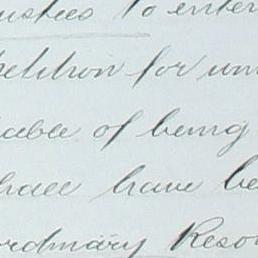 ustees to enter
petition for un
able of being
hall have be
ordinary Reso